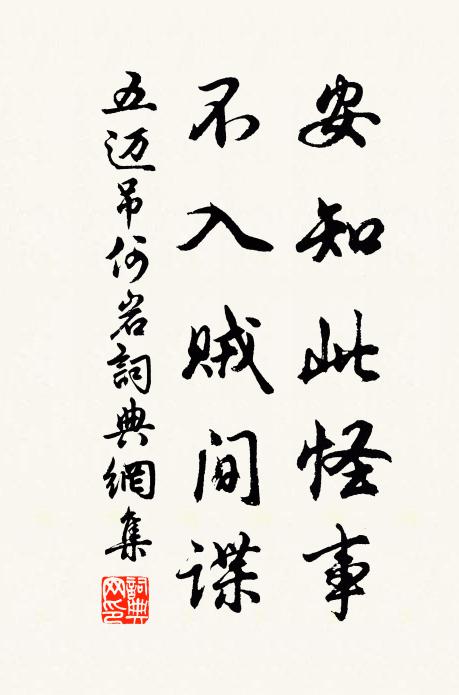 安知此怪事
不入贼间谍
五迈吊何岩詞典網集
詞典网印